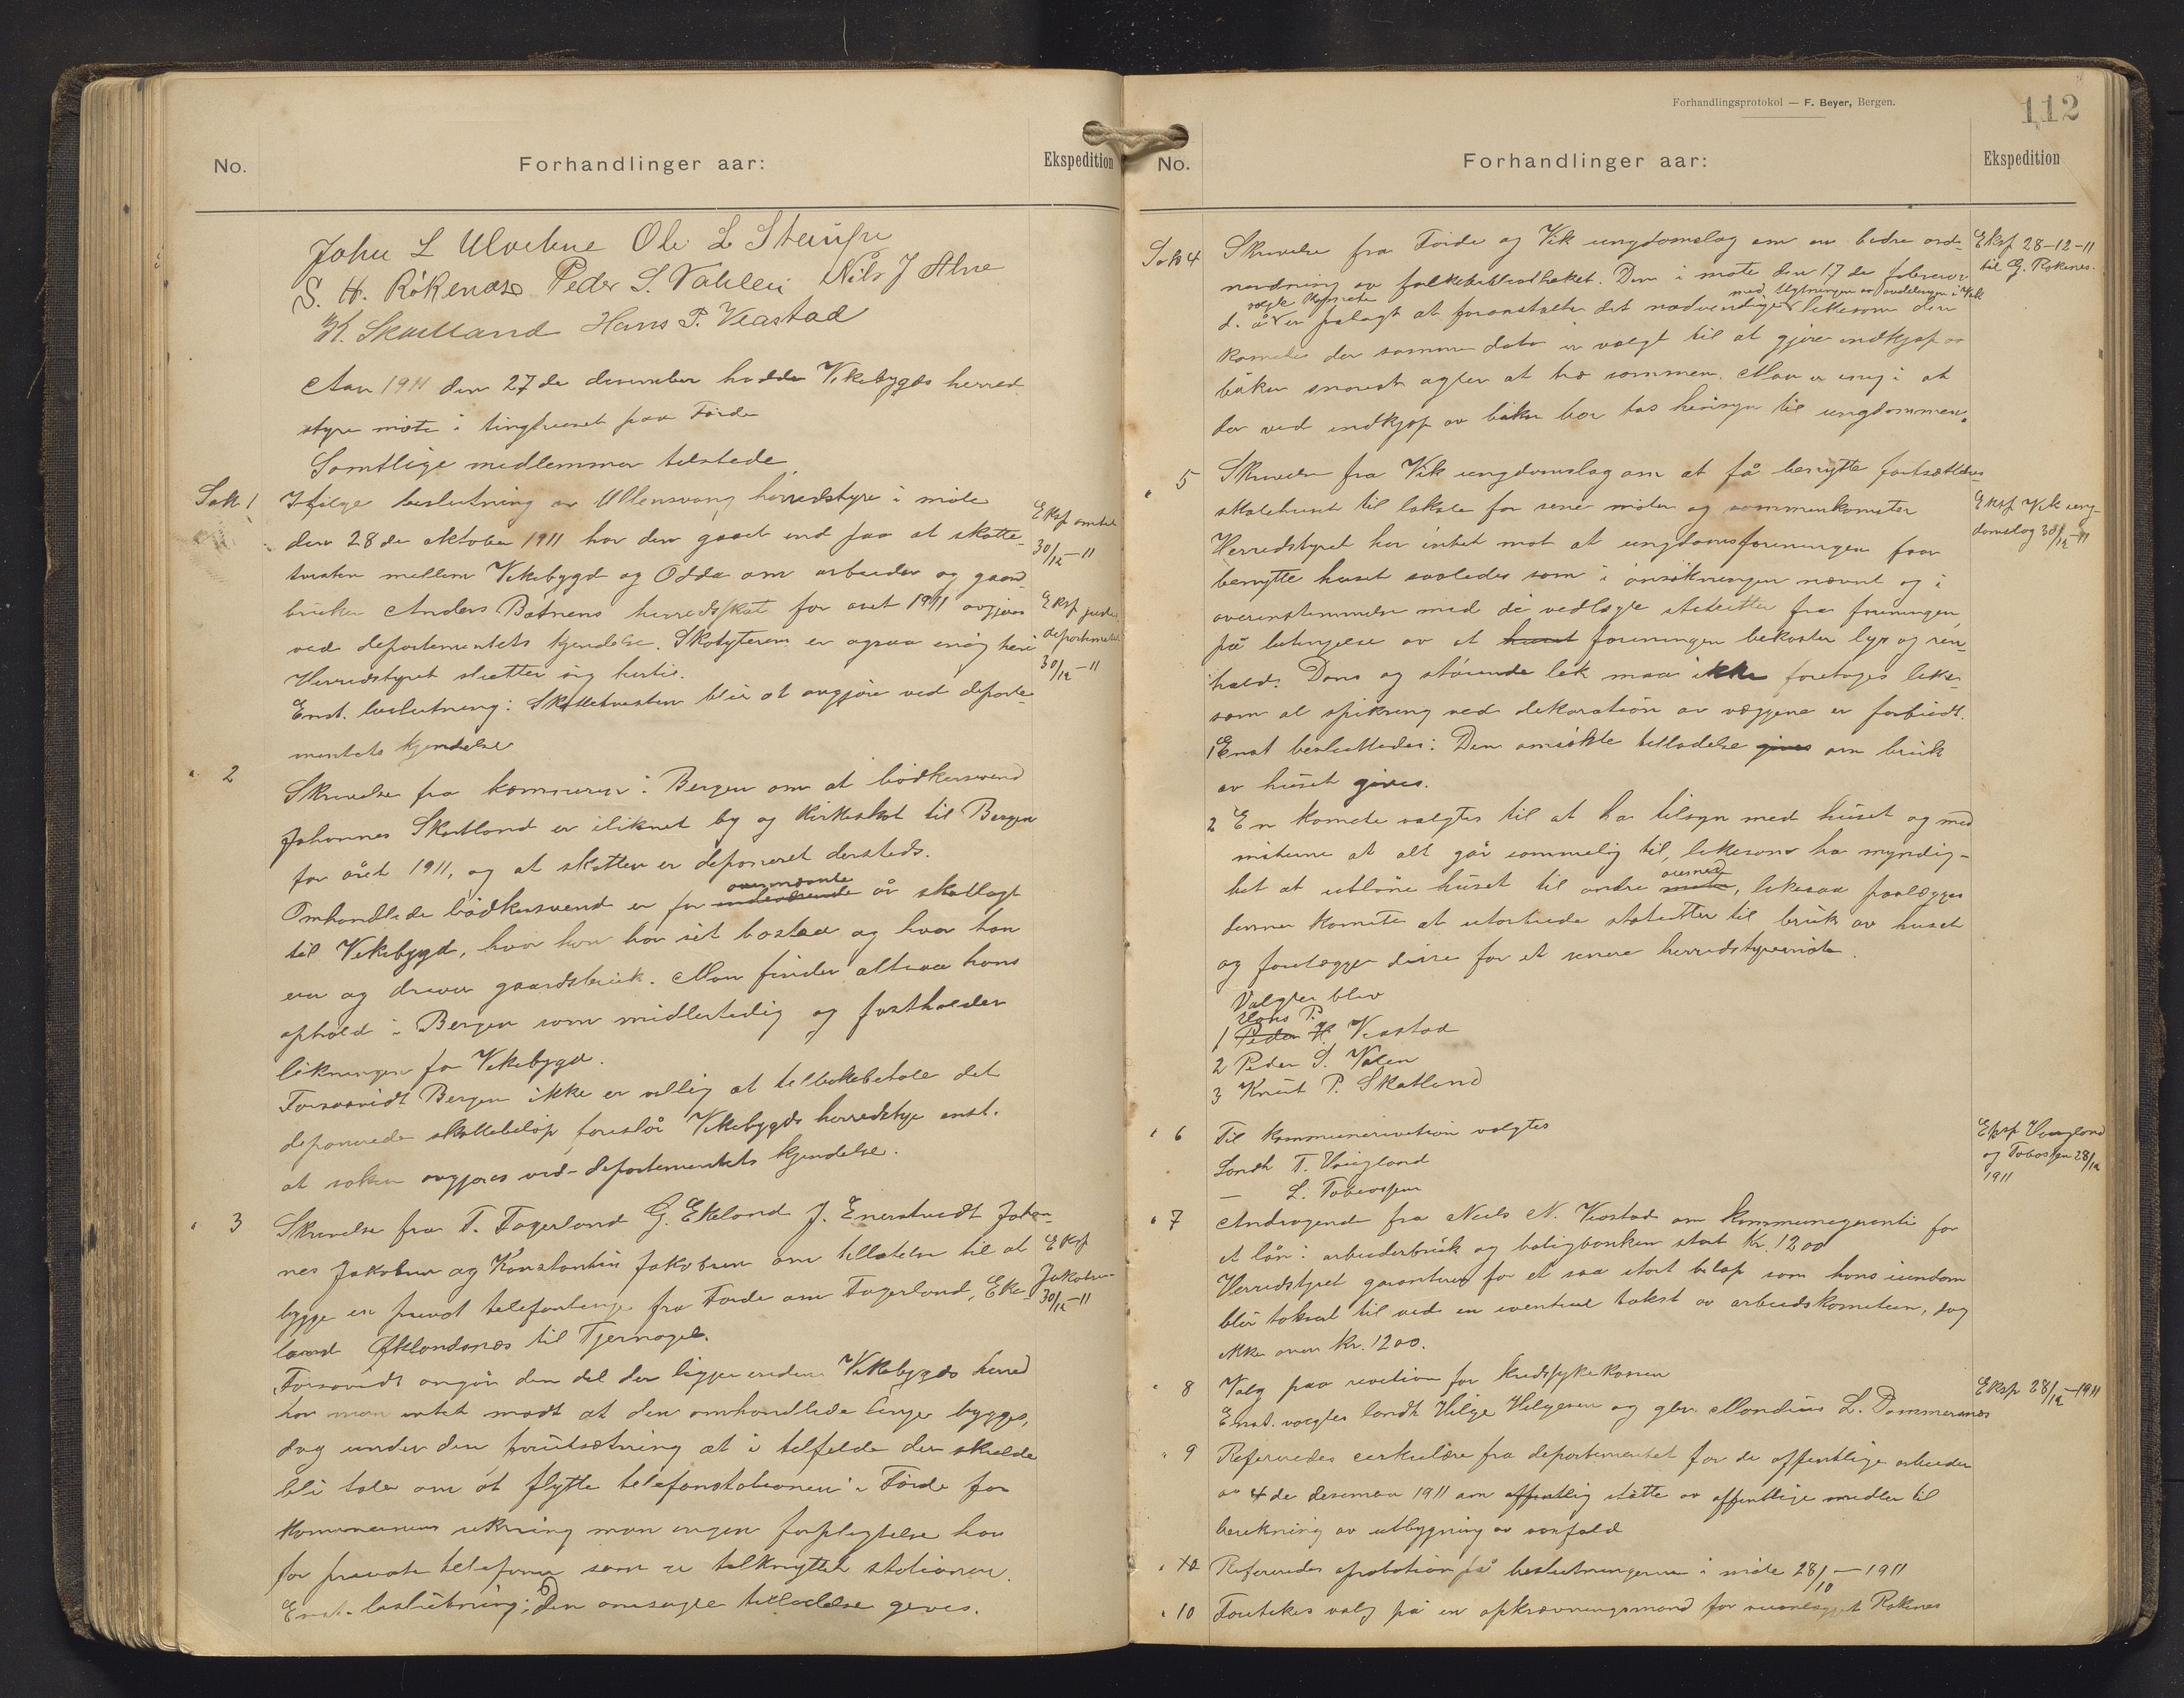 No.
Forhandlinger aar:
Ekspedition
John L Ulvelme Ole L Steinse
S. H. Rökenæs Peder S. Valilei Nils J Alne
K. Skatland Hans P. Veastad
Aar 1911 den 27de desember hadde Vikebygds herred
styre møte i tinghuset paa Førde
Samtlige medlemmer tilstede.
Sak 1
Ifølge beslutning av Ullensvang herredstyre i møte
den 28de oktober 1911 har den gaaet ind paa at skatte-
tvisten mellem Vikebygd og Odda om arbeider og gaard
bruker Anders Båtnens herredsskat for aaret 1911 avgjøres
ved departementets kjendelse. Skatyteren er ogsaa enig heri
Herredstyret slutter sig hertil.
Enst. beslutning: Skattetvisten blir at avgjøre ved departe-
mentets kjendelse
Eksp amtet
30/12-11
Eksp justis
departementet
30/12-11
" 2
Skrivelse fra kæmneren i Bergen om at bødkersvend
Johannes Skartland er iliknet by og kirkeskat til Bergen
for året 1911, og at skatten er deponeret dersteds.
Omhandlede bødkersvend er for indeværende ovennævnte år skatlagt
til Vikebygd, hvor han har sit bosted og hvor han
eier og driver gaardsbruk. Man finder altsaa hans
ophold i Bergen som midlertidig og fastholder
likningen for Vikebygd.
Forsaavidt Bergen ikke er villig at tilbakebetale det
deponerede skattebeløp foreslår Vikebygds herredstyre enst.
at saken avgjøres ved departementets kjendelse.
" 3
Skrivelse fra T. Fagerland G. Ekeland J. Enerstvedt Johan-
nes Jakobsen og Konstantin Jakobsen om tilladelse til at
bygge en privat telefonlinje fra Førde om Fagerland, Eke-
land Øklandsnæs til Tjernagel.
Forsaavidt angår den del der ligger inden Vikebygds herred
har man intet modt at den omhandlede linje bygges,
dog under den forutsætning at i tilfelde der skulde
bli tale om at flytte telefonstationen i Førde for
kommunens rekning man ingen forpligtelse har
for private telefoner som er tilknyttet stationen.
Enst. beslutning: Den omsøgte tilladelse gives.
Eksp
Jakobsen
30/12-11
Forhandlingsprotokol — F. Beyer, Bergen.
112
No.
Forhandlinger aar:
Ekspedition
Sak 4
Skrivelse fra Førde og Vik ungdomslag om en bedre ord-
nordning av folkebiblioteket. Den i møte den 17de februar
valgte komite med flytningen av avdelingen i Vik
d. å er pålagt at foranstalte det nødvendige likesom den
komite der samme dato er valgt til at gjøre indkjøp av
bøker snarest agter at træ sammen. Man er enig i at
der ved indkjøp av bøker bør tas hensyn til ungdommen.
Eksp 28-12-11
til G. Røkenes.
" 5
Skrivelse fra Vik ungdomslag om at få benytte fortsættelses
skolehuset til lokale for sene møter og sammenkomster
Herredstyret har intet mot at ungdomsforeningen faar
benytte huset saaledes som i ansökningen nævnt og i
overenstemmelse med de vedlagte statutter fra foreningen,
på betingelse av at huset foreningen bekoster lys og ren-
hold. Dans og støiende lek maa ikke foretages like-
som at spikring ved dekoration av væggene er forbudt.
1 Enst besluttedes: Den ansøkte tilladelse gives om bruk
av huset gives.
2 En komite valgtes til at ha tilsyn med huset og med
møterne at alt går sømmelig til, likesom ha myndig-
het at utlåne huset til andre øiemed, likesaa paalægges
denne komite at utarbeide statutter til bruk av huset
og forelægge disse for et senere herredstyremøte.
Valgte blev
Hans P.
1 Peder H. Veastad
2 Peder S. Valen
3 Knut P. Skatland
Eksp Vik ung-
domslag 30/12-11
" 6
Til kommunerevision valgtes
Landh T. Vaugland
— L. Tobiassen
Eksp Vaugland
og Tobiassen 28/12
1911
" 7
Andragende fra Neels N. Veastad om kommunegaranti for
et lån i arbeiderbruk og boligbanken stort Kr. 1200
Herredstyret garanterer for et saa stort beløp som hans eiendom
blir takseret til ved en eventuel takst av arbeidskomiteen, dog
ikke over kr. 1200.
" 8
Valg paa revision for kredssykekassen
Enst. valgtes landh Helge Helgesen og gbr. Mandius L. Dommersnes
Eksp 28/12-1911
" 9
Refereredes cirkulære fra departementet for de offentlige arbeider
av 4de desember 1911 om offentlig støtte av offentlige midler til
berekning av utbygning av vanfald
" 10
Refereredes aprobation på beslutningerne i møte 28/10 — 1911
" 10
Foretokes valg på en opkrævningsmand for Røkenes